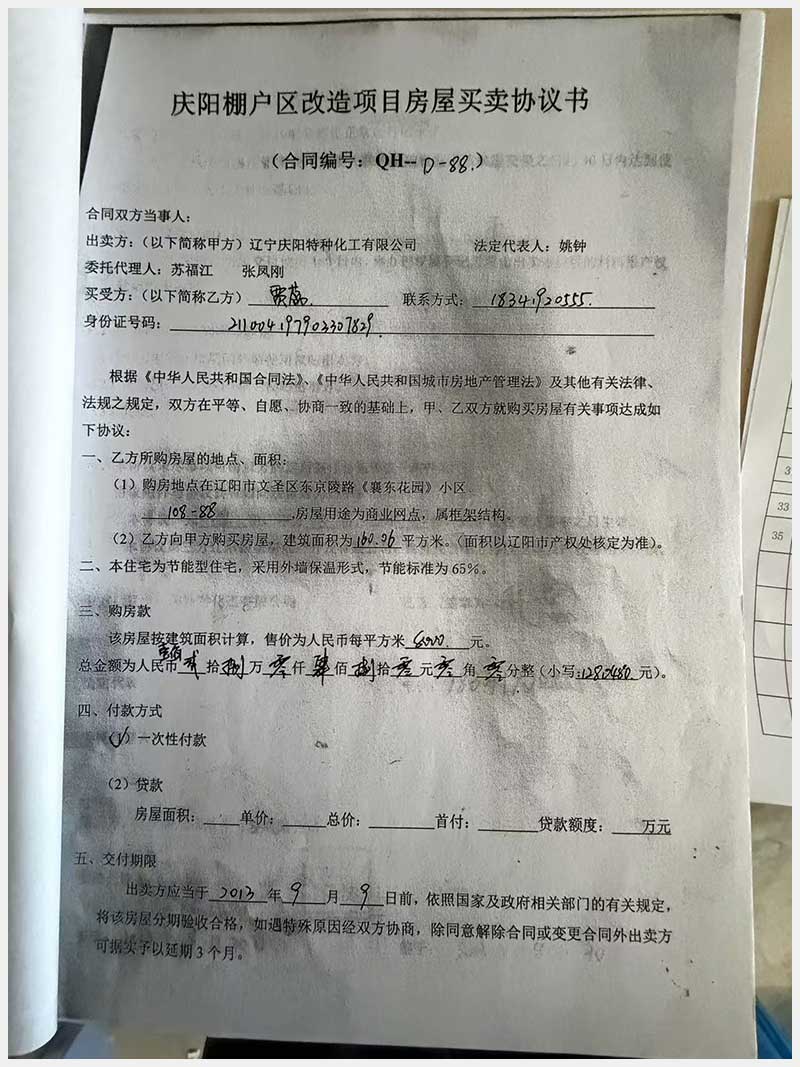 庆阳棚户区改造项目房屋买卖协议书
（合同编号：QH--D-88.）
合同双方当事人：
出卖方：（以下简称甲方）辽宁庆阳特种化工有限公司 法定代表人：姚钟
委托代理人：苏福江 张凤刚
买受方：（以下简称乙方） 联系方式：18341920555.
身份证号码：211004197902307829
根据《中华人民共和国合同法》、《中华人民共和国城市房地产管理法》及其他有关法律、
法规之规定，双方在平等、自愿、协商一致的基础上，甲、乙双方就购买房屋有关事项达成如
下协议：
一、乙方所购房屋的地点、面积：
（1）购房地点在辽阳市文圣区东京陵路《襄东花园》小区
108-88 ,房屋用途为商业网点，属框架结构。
（2）乙方向甲方购买房屋，建筑面积为160.06平方米。（面积以辽阳市产权处核定为准）。
二、本住宅为节能型住宅，采用外墙保温形式，节能标准为 65%。
三、购房款
该房屋按建筑面积计算，售价为人民币每平方米 8000. 元。
总金额为人民币壹佰贰拾捌万零仟肆佰捌拾零元零角零分整（小写:1280480元）。
四、付款方式
（1）一次性付款
（2）贷款
房屋面积：____单价：____总价：____首付：____贷款额度：____万元
五、交付期限
出卖方应当于 2013 年 9 月 9 日前，依照国家及政府相关部门的有关规定，
将该房屋分期验收合格，如遇特殊原因经双方协商，除同意解除合同或变更合同外出卖方
可据实予以延期 3 个月。
33
35